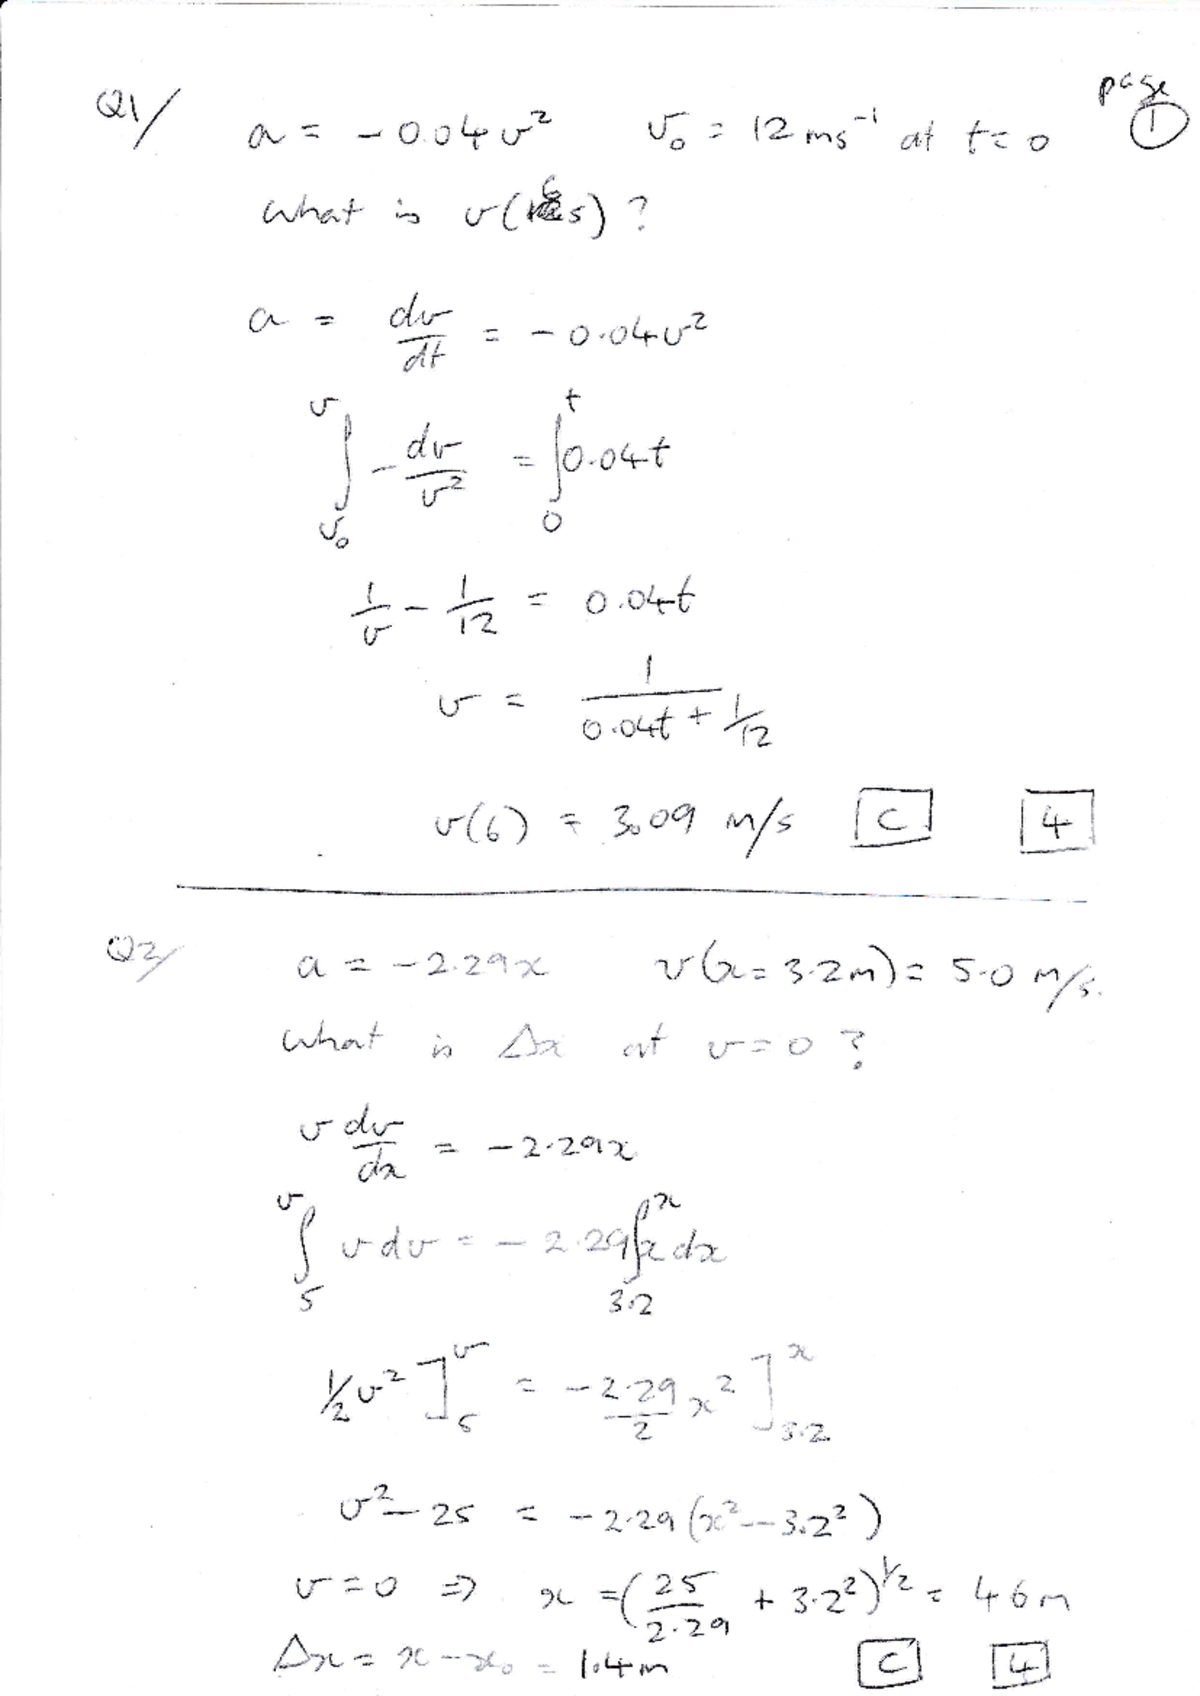 page
①
Q1/ a = -0.04v² v₀ = 12 ms⁻¹ at t=0
what is v( s)?
a = dv/dt = -0.04v²
∫_{v₀}^{v} -dv/v² = ∫_{0}^{t} 0.04t
1/v - 1/12 = 0.04t
v = 1/(0.04t + 1/12)
v(6) = 3.09 m/s C 4
Q2/ a = -2.29x v(x=3.2m) = 5.0 m/s.
what is Δx at v=0?
v dv/dx = -2.29x
∫_{5}^{v} v dv = -2.29 ∫_{3.2}^{x} x dx
½v²]_{5}^{v} = -2.29/2 x²]_{3.2}^{x}
v² - 25 = -2.29(x² - 3.2²)
v=0 ⇒ x = (25/2.29 + 3.2²)^{1/2} = 4.6m
Δx = x - x₀ = 1.4m C 4